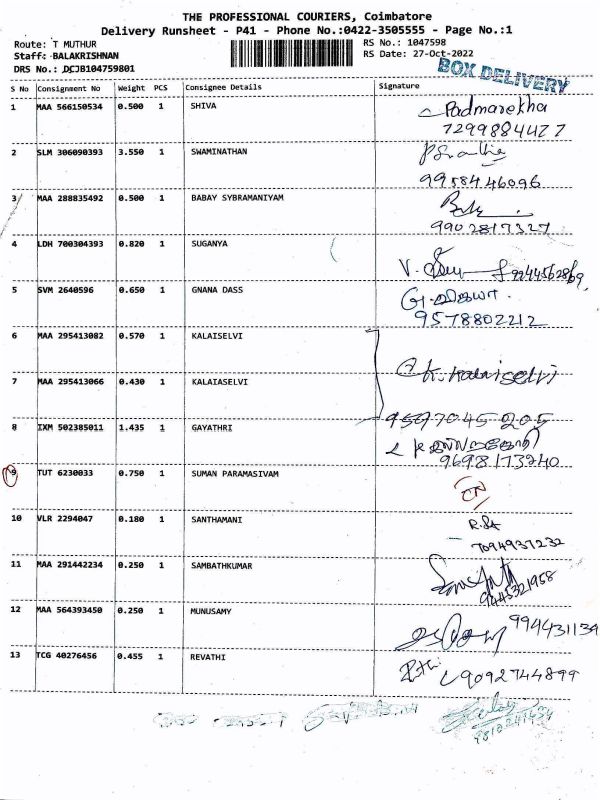 THE PROFESSIONAL COURIERS, Coimbatore
Delivery Runsheet - P41 - Phone No.:0422-3505555 - Page No.:1
Route: T MUTHUR
RS No.: 1047598
Staff: BALAKRISHNAN
RS Date: 27-Oct-2022
DRS No.: DCJB104759801
BOX DELIVERY
S No Consignment No Weight PCS Consignee Details Signature
1 MAA 566150534 0.500 1 SHIVA Padmarekha
7299884427
2 SLM 306090393 3.550 1 SWAMINATHAN
9958446096
3 MAA 288835492 0.500 1 BABAY SYBRAMANIYAM
9902817327
4 LDH 700304393 0.820 1 SUGANYA
5 SVM 2640596 0.650 1 GNANA DASS
9578802212
6 MAA 295413082 0.570 1 KALAISELVI
K. Kalaiselvi
7 MAA 295413066 0.430 1 KALAIASELVI
9597045205
8 IXM 502385011 1.435 1 GAYATHRI
9698173240
9 TUT 6230033 0.750 1 SUMAN PARAMASIVAM
10 VLR 2294047 0.180 1 SANTHAMANI
7094937232
11 MAA 291442234 0.250 1 SAMBATHKUMAR
9445321958
12 MAA 564393450 0.250 1 MUNUSAMY
994431139
13 TCG 40276456 0.455 1 REVATHI
9092744899